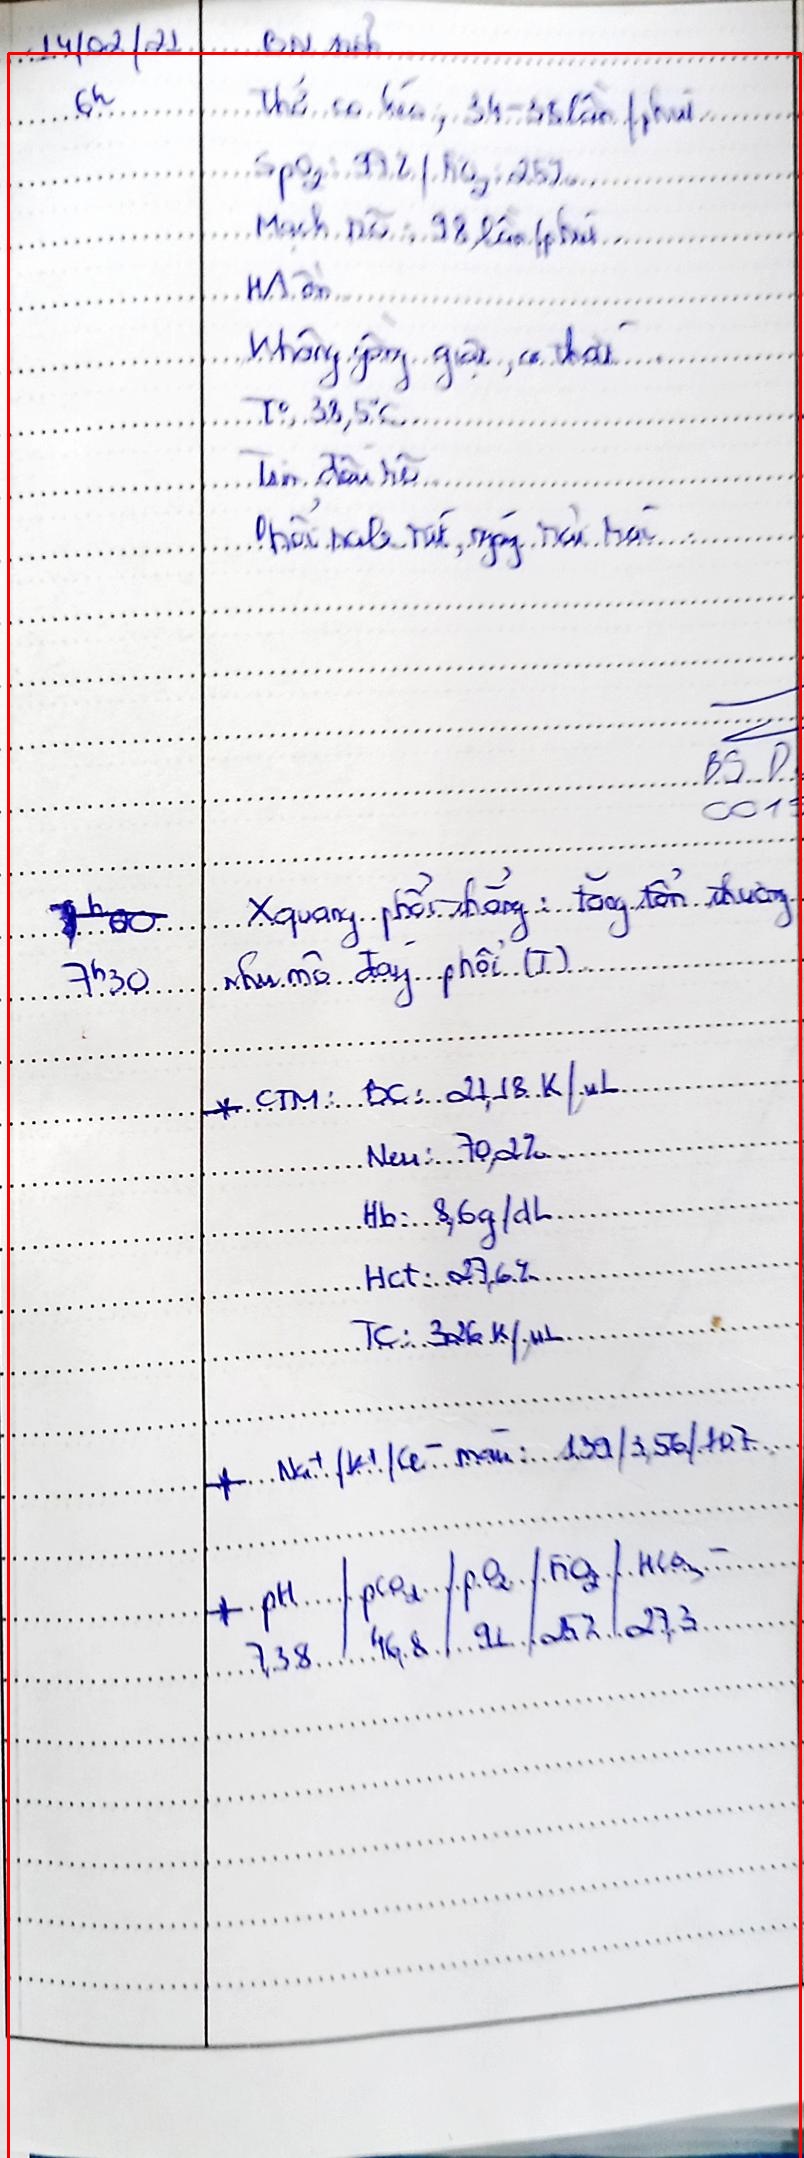 14/02/21 BN tỉnh
6h Thở co kéo, 34-38 lần/phút
SpO2: 99% / FiO2: 25%
Mạch rõ: 98 lần/phút
HA ổn
Không gồng giật,
T°: 38,5°C
Tim đều rõ
Phổi rale
BS. D.
001
7h00 Xquang phổi thẳng: tăng tổn thương
7h30 nhu mô đáy phổi (T)
* CTM: BC: 21,18 K/uL
Neu: 70,2%
Hb: 8,6g/dL
Hct: 27,6%
TC: 326 K/uL
* Na+/K+/Cl- máu: 139/3,56/107
* pH / pCO2 / pO2 / FiO2 / HCO3-
7,38 46,8 / 91 / 25% / 27,3